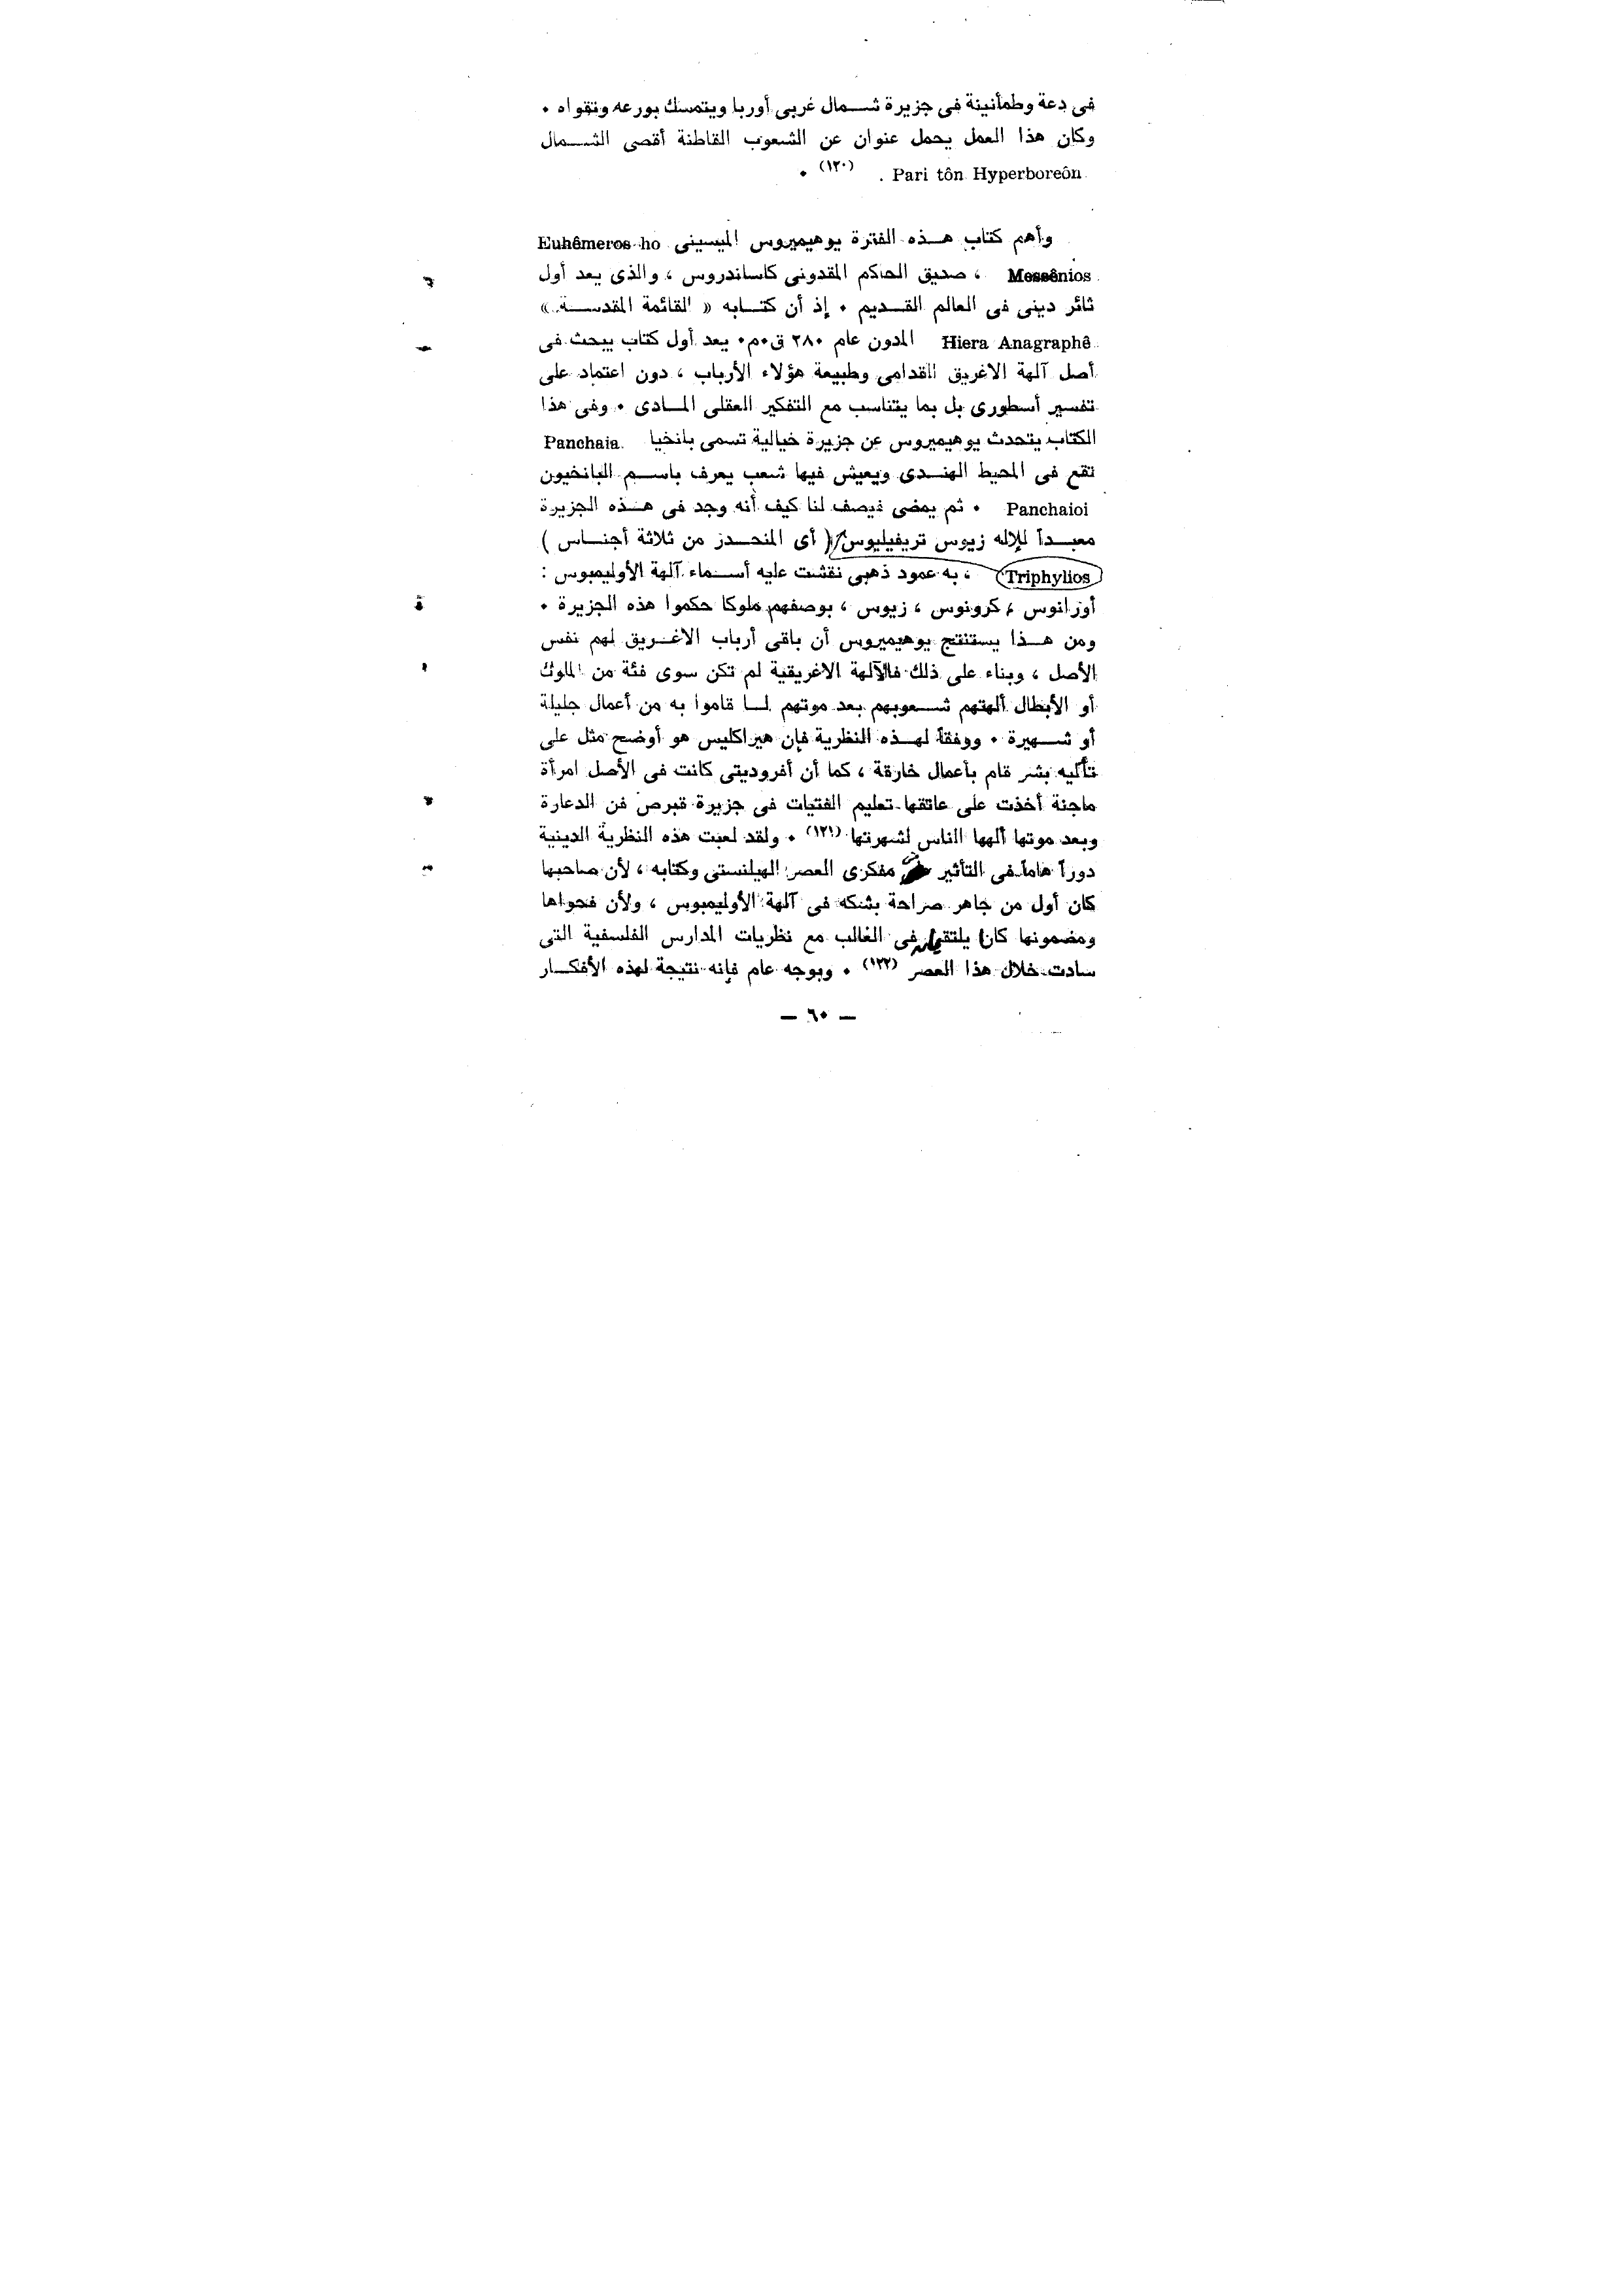 فى دعة وطمأنينة فى جزيرة شــمال غربى أوربا ويتمسك بورعه وتقواه ٠
وكان هذا العمل يحمل عنوان عن الشعوب القاطنة أقصى الشــمال
Pari tôn Hyperboreôn . (١٢٠) ٠
وأهم كتاب هــذه الفترة يوهيميروس الميسينى Euhêmeros ho
Messênios ، صديق الحاكم المقدونى كاساندروس ، والذى يعد أول
ثائر دينى فى العالم القــديم ٠ إذ أن كتــابه « القائمة المقدســة »
Hiera Anagraphê المدون عام ٢٨٠ ق٠م٠ يعد أول كتاب يبحث فى
أصل آلهة الاغريق القدامى وطبيعة هؤلاء الأرباب ، دون اعتماد على
تفسير أسطورى بل بما يتناسب مع التفكير العقلى المــادى ٠ وفى هذا
الكتاب يتحدث يوهيميروس عن جزيرة خيالية تسمى بانخيا Panchaia
تقع فى المحيط الهنــدى ويعيش فيها شعب يعرف باســم البانخيون
Panchaioi ٠ ثم يمضى فيصف لنا كيف أنه وجد فى هــذه الجزيرة
معبــداً للإله زيوس تريفيليوس ( أى المنحــدر من ثلاثة أجنــاس )
Triphylios ، به عمود ذهبى نقشت عليه أســماء آلهة الأوليمبوس :
أورانوس ، كرونوس ، زيوس ، بوصفهم ملوكا حكموا هذه الجزيرة ٠
ومن هــذا يستنتج يوهيميروس أن باقى أرباب الاغــريق لهم نفس
الأصل ، وبناء على ذلك فالآلهة الاغريقية لم تكن سوى فئة من الملوك
أو الأبطال ألهتهم شــعوبهم بعد موتهم لــا قاموا به من أعمال جليلة
أو شــهيرة ٠ ووفقاً لهــذه النظرية فإن هيراكليس هو أوضح مثل على
تأليه بشر قام بأعمال خارقة ، كما أن أفروديتى كانت فى الأصل امرأة
ماجنة أخذت على عاتقها تعليم الفتيات فى جزيرة قبرص فن الدعارة
وبعد موتها ألهها الناس لشهرتها (١٢١) ٠ ولقد لعبت هذه النظرية الدينية
دوراً هاماً فى التأثير مفكرى العصر الهيلنستى وكتابه ، لأن صاحبها
كان أول من جاهر صراحة بشكه فى آلهة الأوليمبوس ، ولأن فحواها
ومضمونها كانا يلتقيان فى الغالب مع نظريات المدارس الفلسفية التى
سادت خلال هذا العصر (١٢٢) ٠ وبوجه عام فإنه نتيجة لهذه الأفكــار
— ٦٠ —